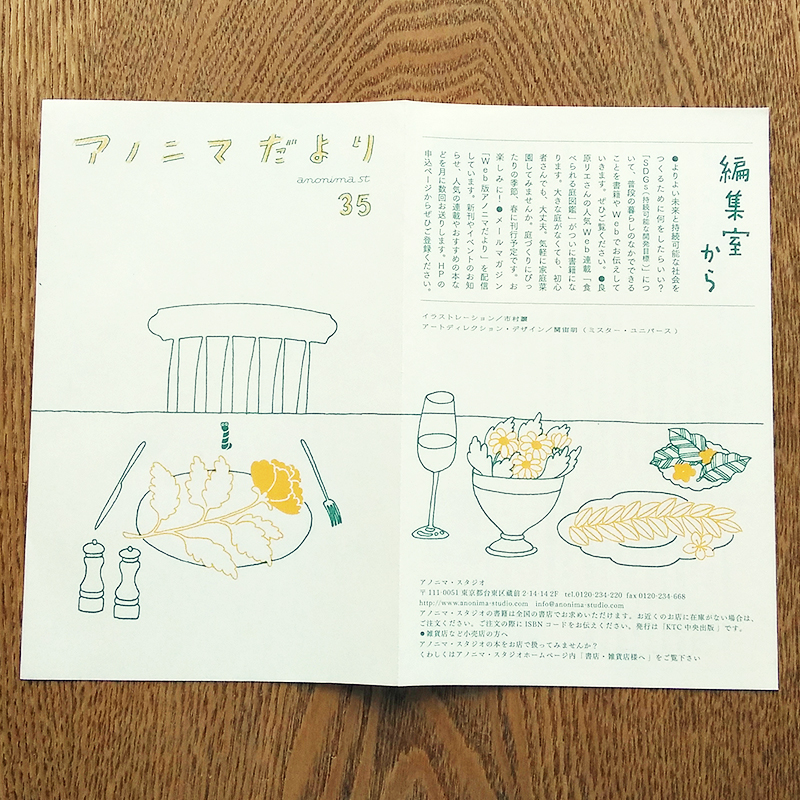 アノニマだより
anonima st
35
編集室
から
●よりよい未来と持続可能な社会を
つくるために何をしたらいい？
「SDGs（持続可能な開発目標）」につ
いて、普段の暮らしのなかでできる
ことを書籍やWebでお伝えして
いきます。ぜひご覧ください。●良
原リエさんの人気Web連載「食
べられる庭図鑑」がついに書籍にな
ります。大きな庭がなくても、初心
者さんでも、大丈夫。気軽に家庭菜
園してみませんか。庭づくりにぴっ
たりの季節、春に刊行予定です。お
楽しみに！●メールマガジン
「Web版アノニマだより」を配信
しています。新刊やイベントのお知
らせ、人気の連載やおすすめの本な
どを月に数回お送りします。HPの
申込ページからぜひご登録ください。
イラストレーション／市村譲
アートディレクション・デザイン／関宙明（ミスター・ユニバース）
アノニマ・スタジオ
〒111-0051 東京都台東区蔵前2-14-14 2F tel.0120-234-220 fax 0120-234-668
http://www.anonima-studio.com info@anonima-studio.com
アノニマ・スタジオの書籍は全国の書店でお求めいただけます。お近くのお店に在庫がない場合は、
ご注文ください。ご注文の際にISBNコードをお伝えください。発行は「KTC中央出版」です。
●雑貨店など小売店の方へ
アノニマ・スタジオの本をお店で扱ってみませんか？
くわしくはアノニマ・スタジオホームページ内「書店・雑貨店様へ」をご覧下さい